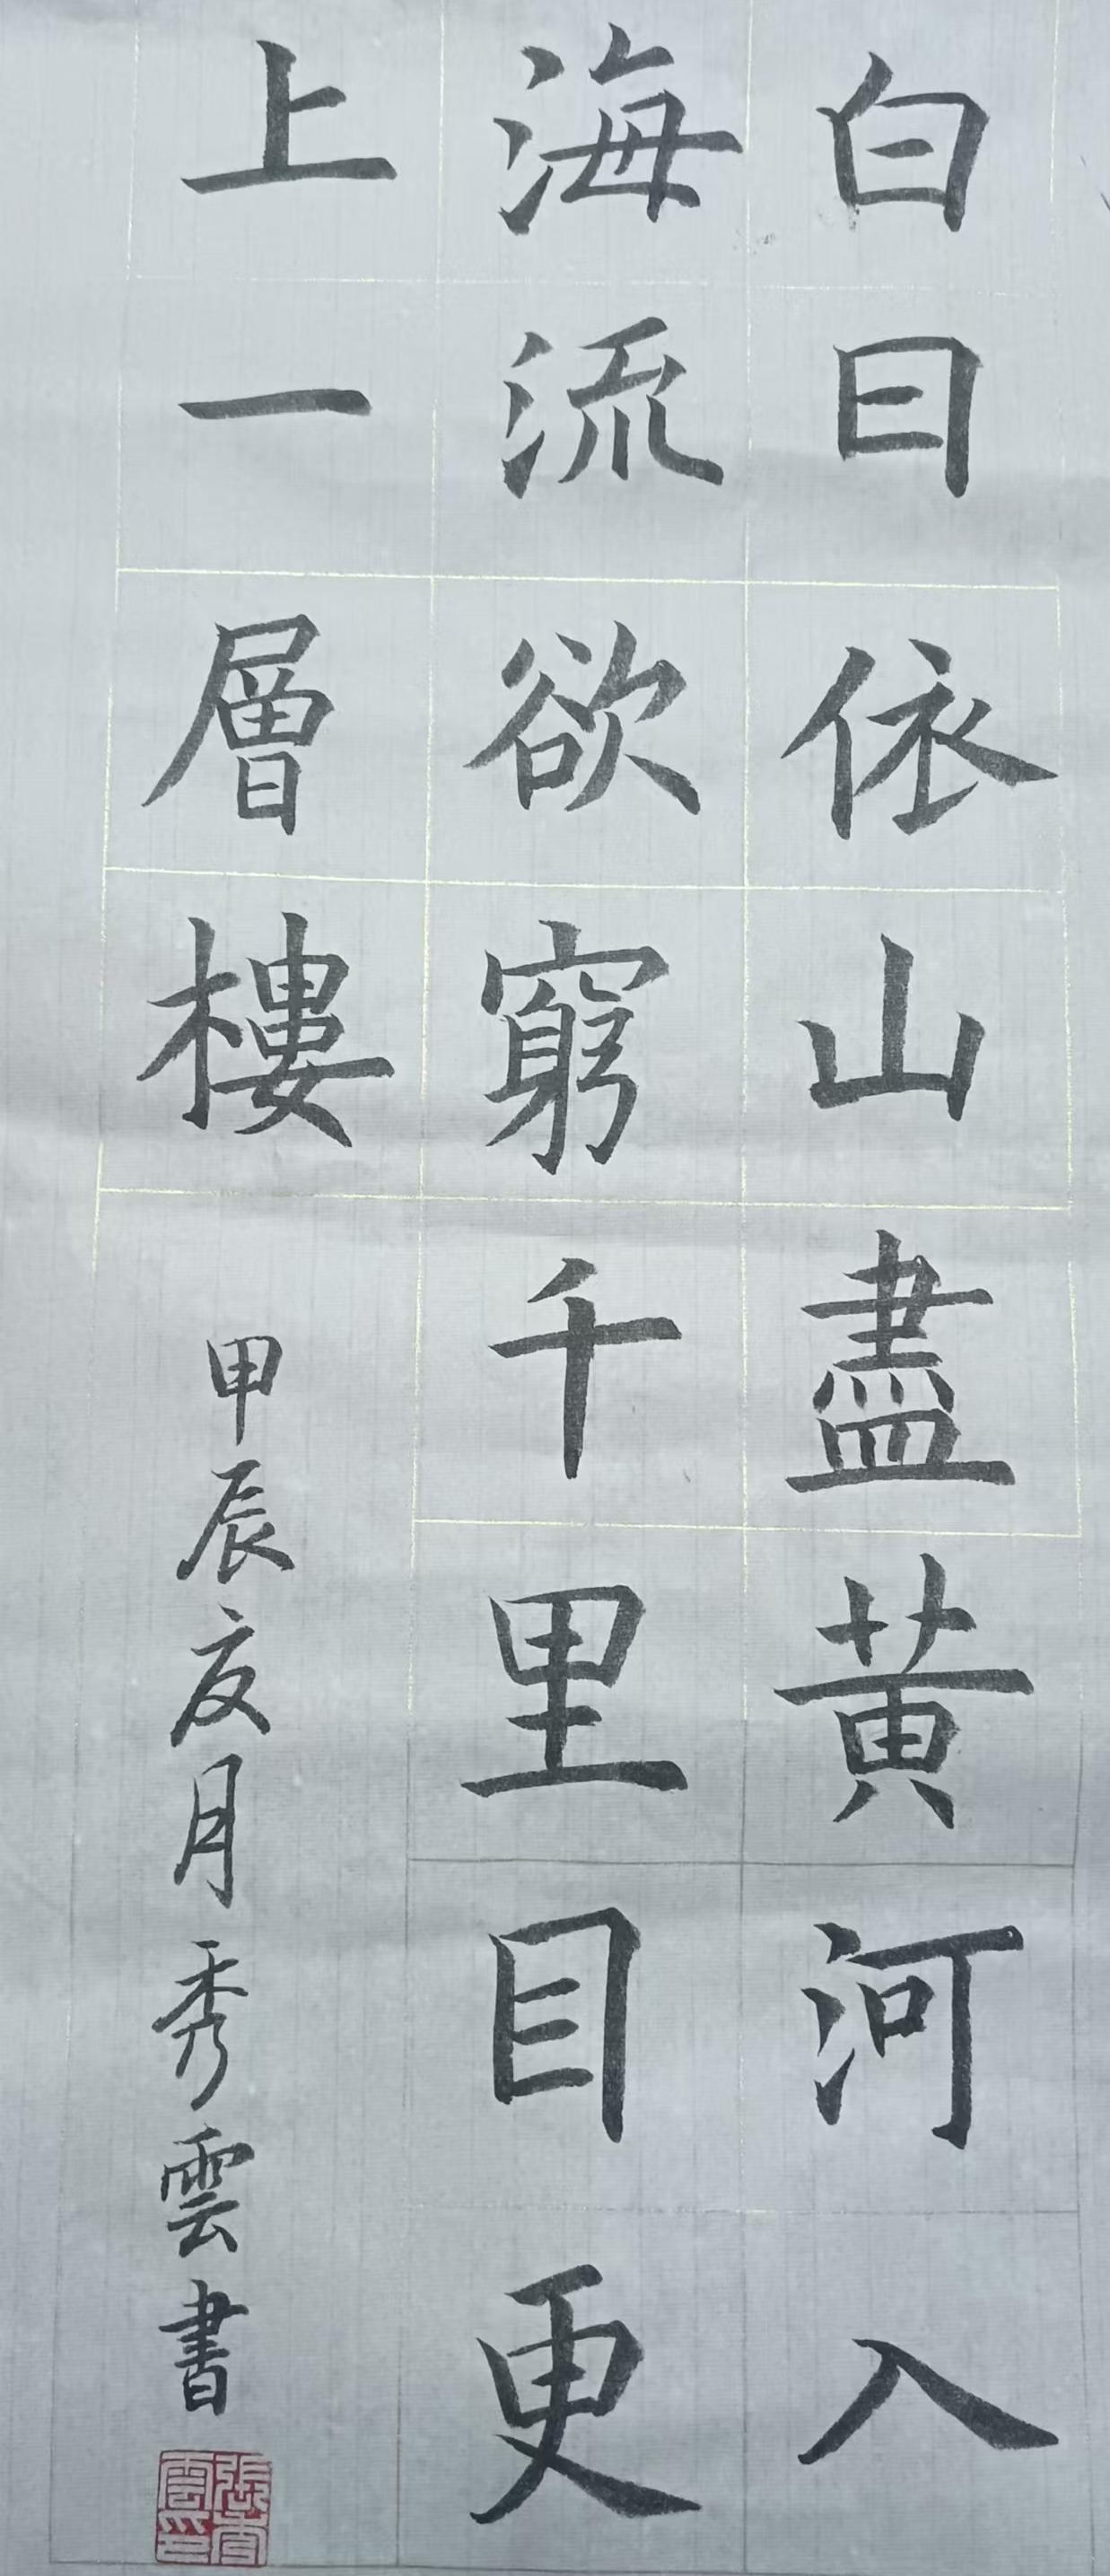 白日依山盡黃河入
海流欲窮千里目更
上一層樓
甲辰夏月秀雲書
張秀雲印